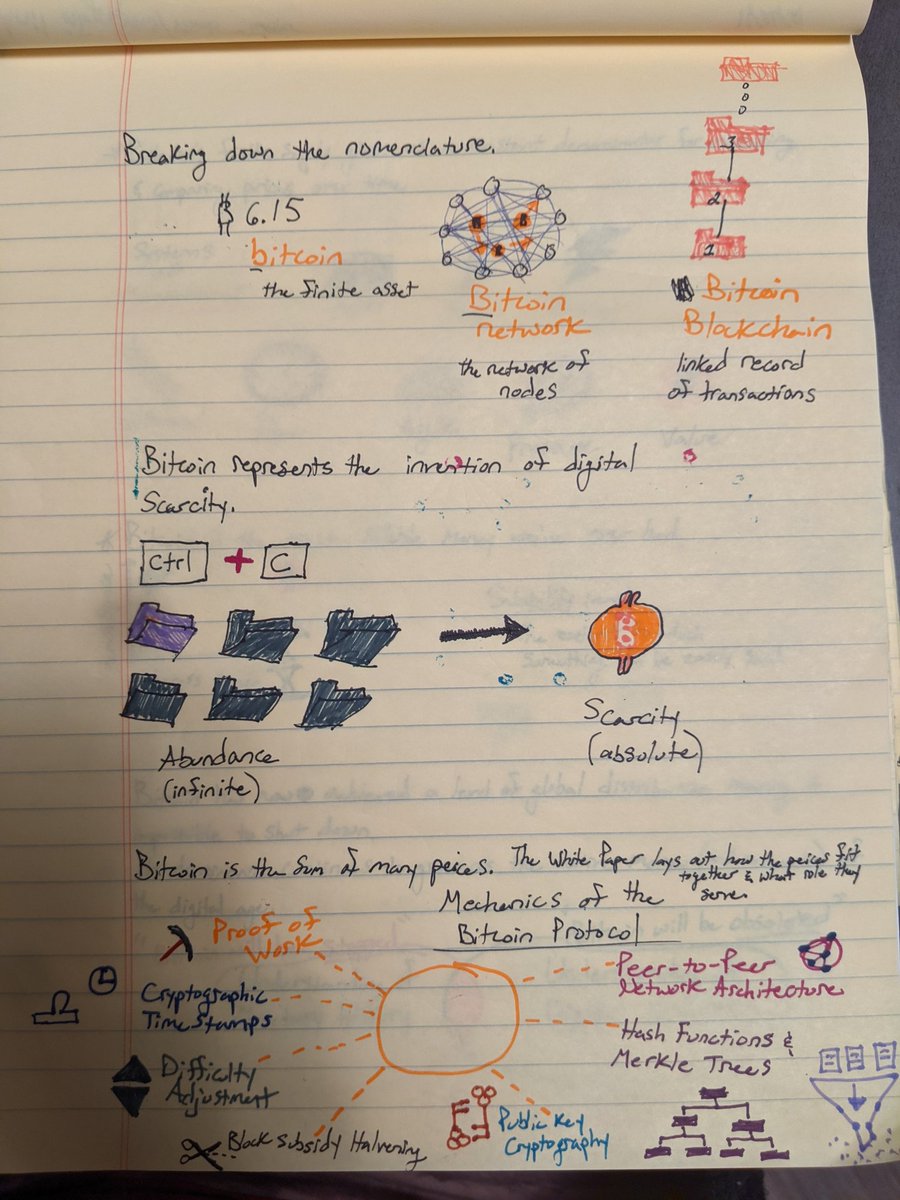 Breaking down the nomenclature.
₿ 6.15
bitcoin
the finite asset
Bitcoin
network
the network of
nodes
3
2
1
Bitcoin
Blockchain
linked record
of transactions
Bitcoin represents the invention of digital
Scarcity.
Ctrl + C
Abundance
(infinite)
Scarcity
(absolute)
Bitcoin is the sum of many peices. The White Paper lays out how the peices fit
together & what role they
serve
Mechanics of the
Bitcoin Protocol
Proof of
Work
Cryptographic
Time Stamps
Difficulty
Adjustment
Block Subsidy Halvening
Public Key
Cryptography
Peer-to-Peer
Network Architecture
Hash Functions &
Merkle Trees